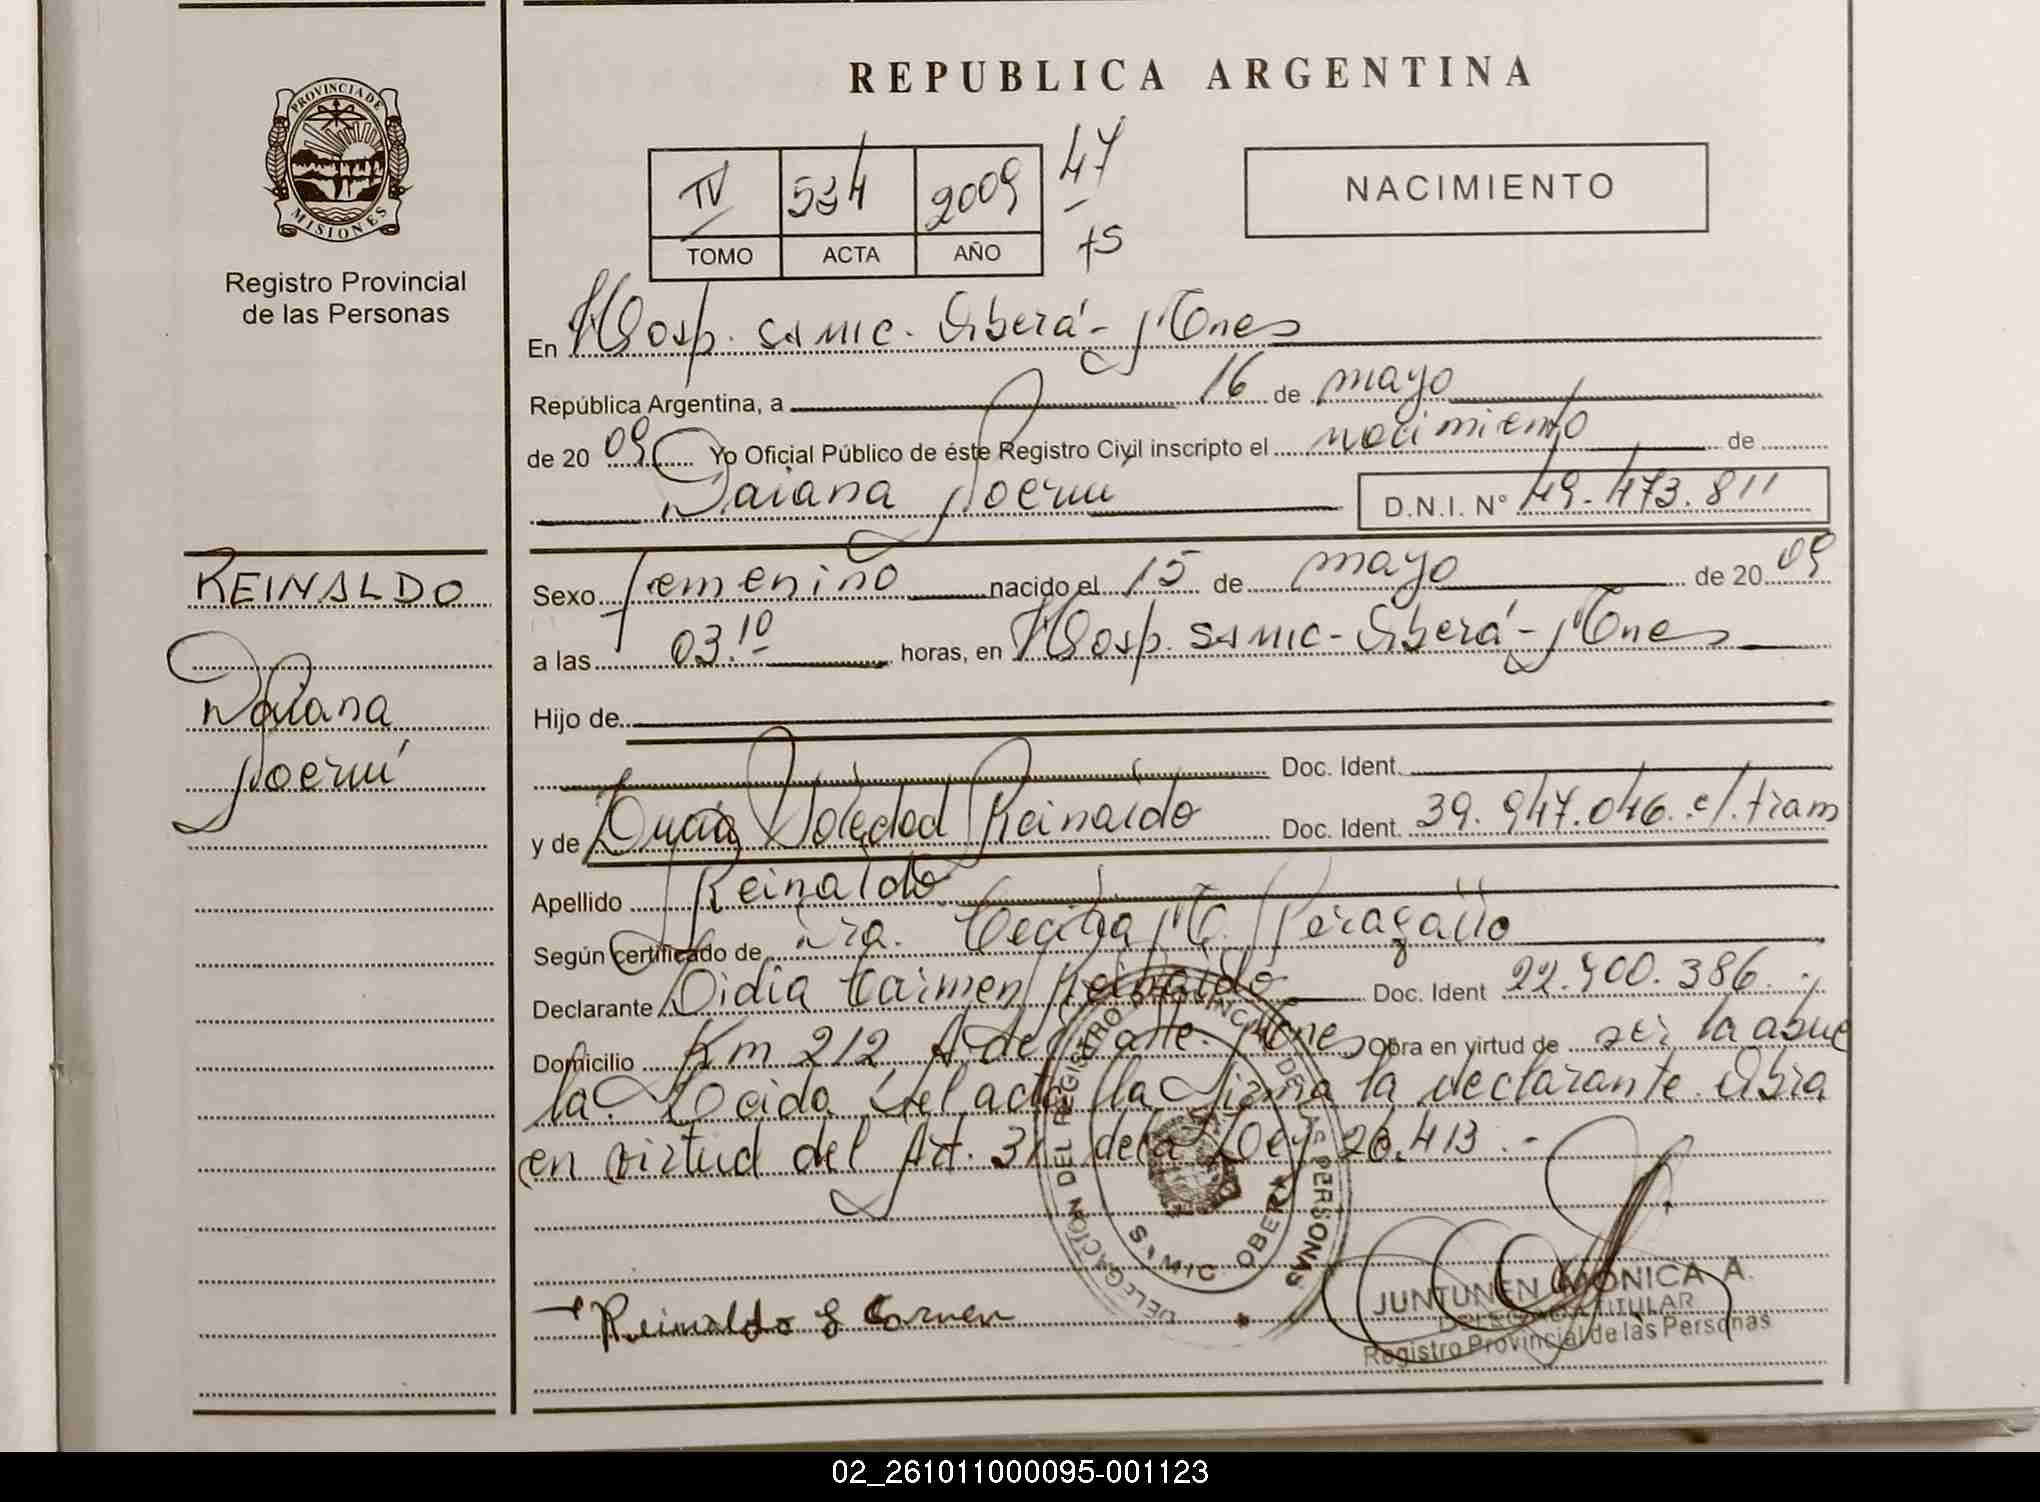 REPUBLICA ARGENTINA
PROVINCIA DE
MISIONES
Registro Provincial
de las Personas
IV 534 2009 47
TOMO ACTA AÑO
NACIMIENTO
En Hosp. SAMIC. Oberá - Mones
República Argentina, a 16 de mayo
de 20 09 Yo Oficial Público de éste Registro Civil inscripto el nacimiento de
Daiana Noemí
D.N.I. Nº 49.473.811
REINALDO
Daiana
Noemí
Sexo femenino nacido el 15 de mayo de 20 09
a las 03.10 horas, en Hosp. SAMIC - Oberá - Mones
Hijo de
Doc. Ident.
y de Soledad Reinaldo Doc. Ident. 39.947.046. e/. tram
Apellido Reinaldo
Según certificado de Dra. Cecilia M. Peragallo
Declarante Lidia Carmen Reinaldo Doc. Ident 22.900.386.
Domicilio Km 212 A. del Valle. Mones Obra en virtud de ser la abue
la. Leída del acta la firma la declarante. Obra
en virtud del Art. 31 de la Ley 26.413.-
DELEGACIÓN DEL REGISTRO PROVINCIAL DE LAS PERSONAS
SAMIC OBERÁ
Reinaldo L Carmen
JUNTUNEN MONICA A.
DELEGADA TITULAR
Registro Provincial de las Personas
02_261011000095-001123